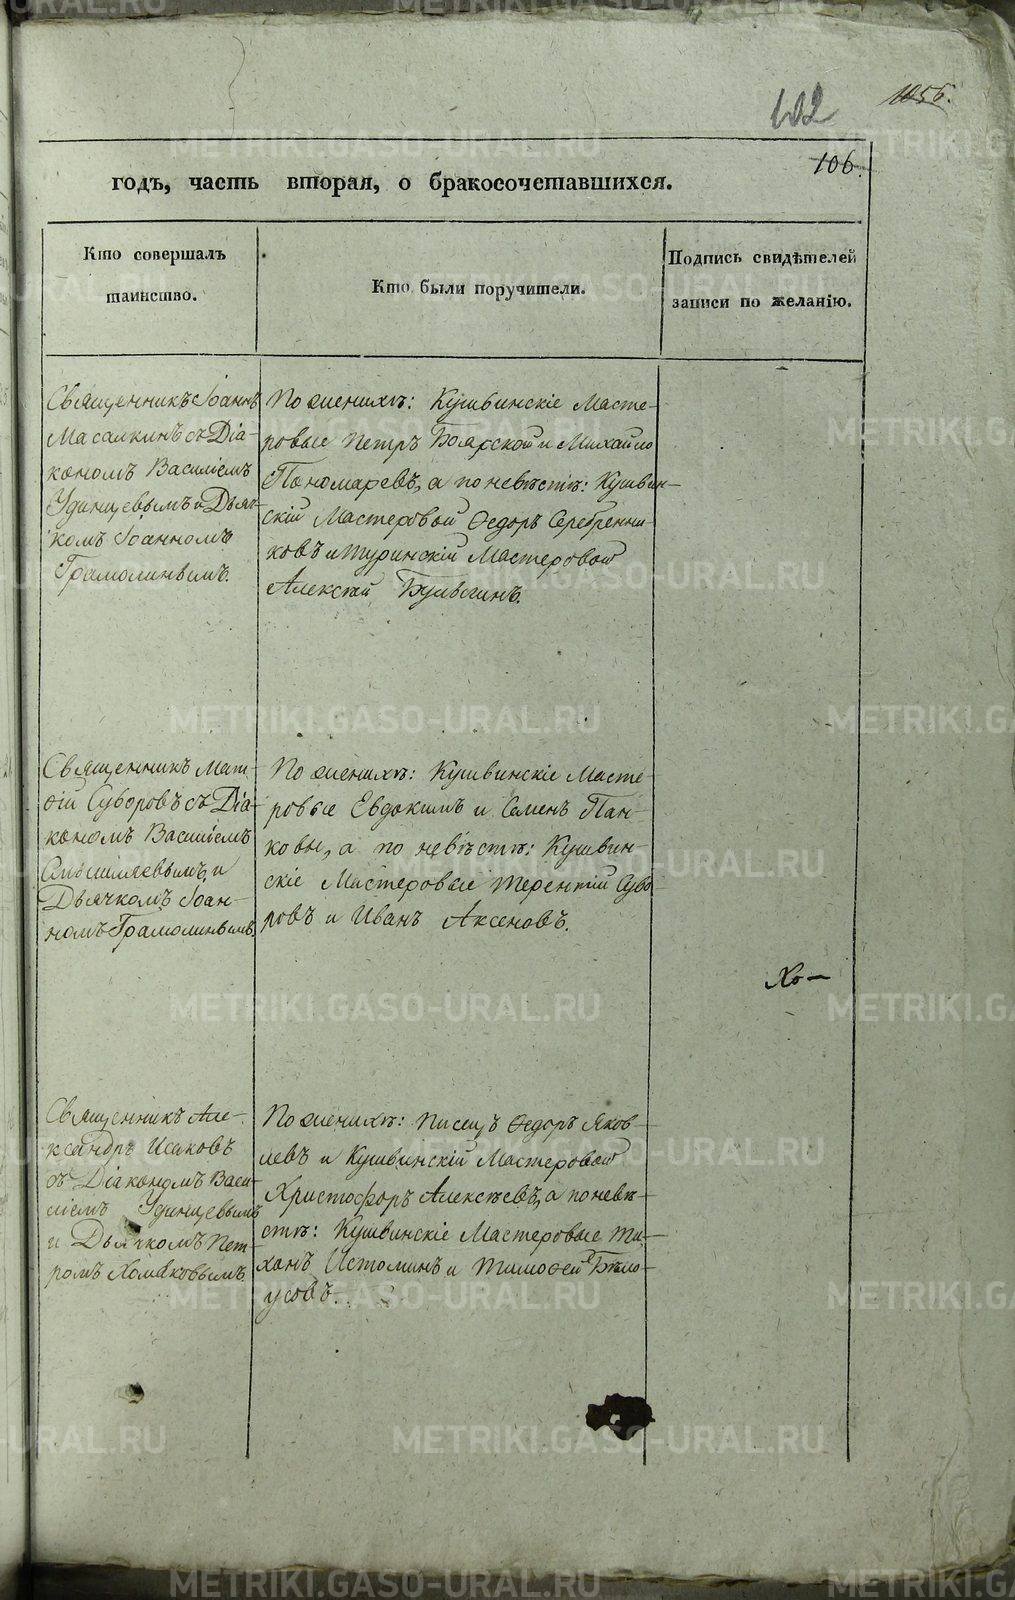 102
1056.
106.
годъ, часть вторая, о бракосочетавшихся.
Кто совершалъ
таинство.
Кто были поручители.
Подпись свидѣтелей
записи по желанію.
Священникъ Іоаннъ
Масалкинъ съ Діа-
кономъ Василіемъ
Удинцевымъ и Дьяч-
комъ Іоанномъ
Грамолинымъ.
По женихѣ: Кушвинскіе Масте-
ровые Петръ Боярской и Михайло
Пономаревъ, а по невѣстѣ: Кушвин-
скій Мастеровой Ѳедоръ Серебренни-
ковъ и Туринскій Мастеровой
Алексѣй Булыгинъ.
Священникъ Мат-
ѳій Суворовъ съ Діа-
кономъ Василіемъ
и
Дьячкомъ Іоан-
номъ Грамолинымъ.
По женихѣ: Кушвинскіе Масте-
ровые Евдокимъ и Семенъ Пан-
ковы, а по невѣстѣ: Кушвин-
скіе Мастеровые Терентій Суво-
ровъ и Иванъ Аксеновъ.
Хо-
Священникъ Але-
ксандръ Исаковъ
съ Діакономъ Васи-
ліемъ Удинцевымъ
и Дьячкомъ Пет-
ромъ Хомяковымъ.
По женихѣ: Писецъ Ѳедоръ Яков-
левъ и Кушвинскій Мастеровой
Христофоръ Алексѣевъ, а по невѣ-
стѣ: Кушвинскіе Мастеровые Ти-
ханъ Истоминъ и Тимоѳей Бѣло-
усовъ.
METRIKI.GASO-URAL.RU